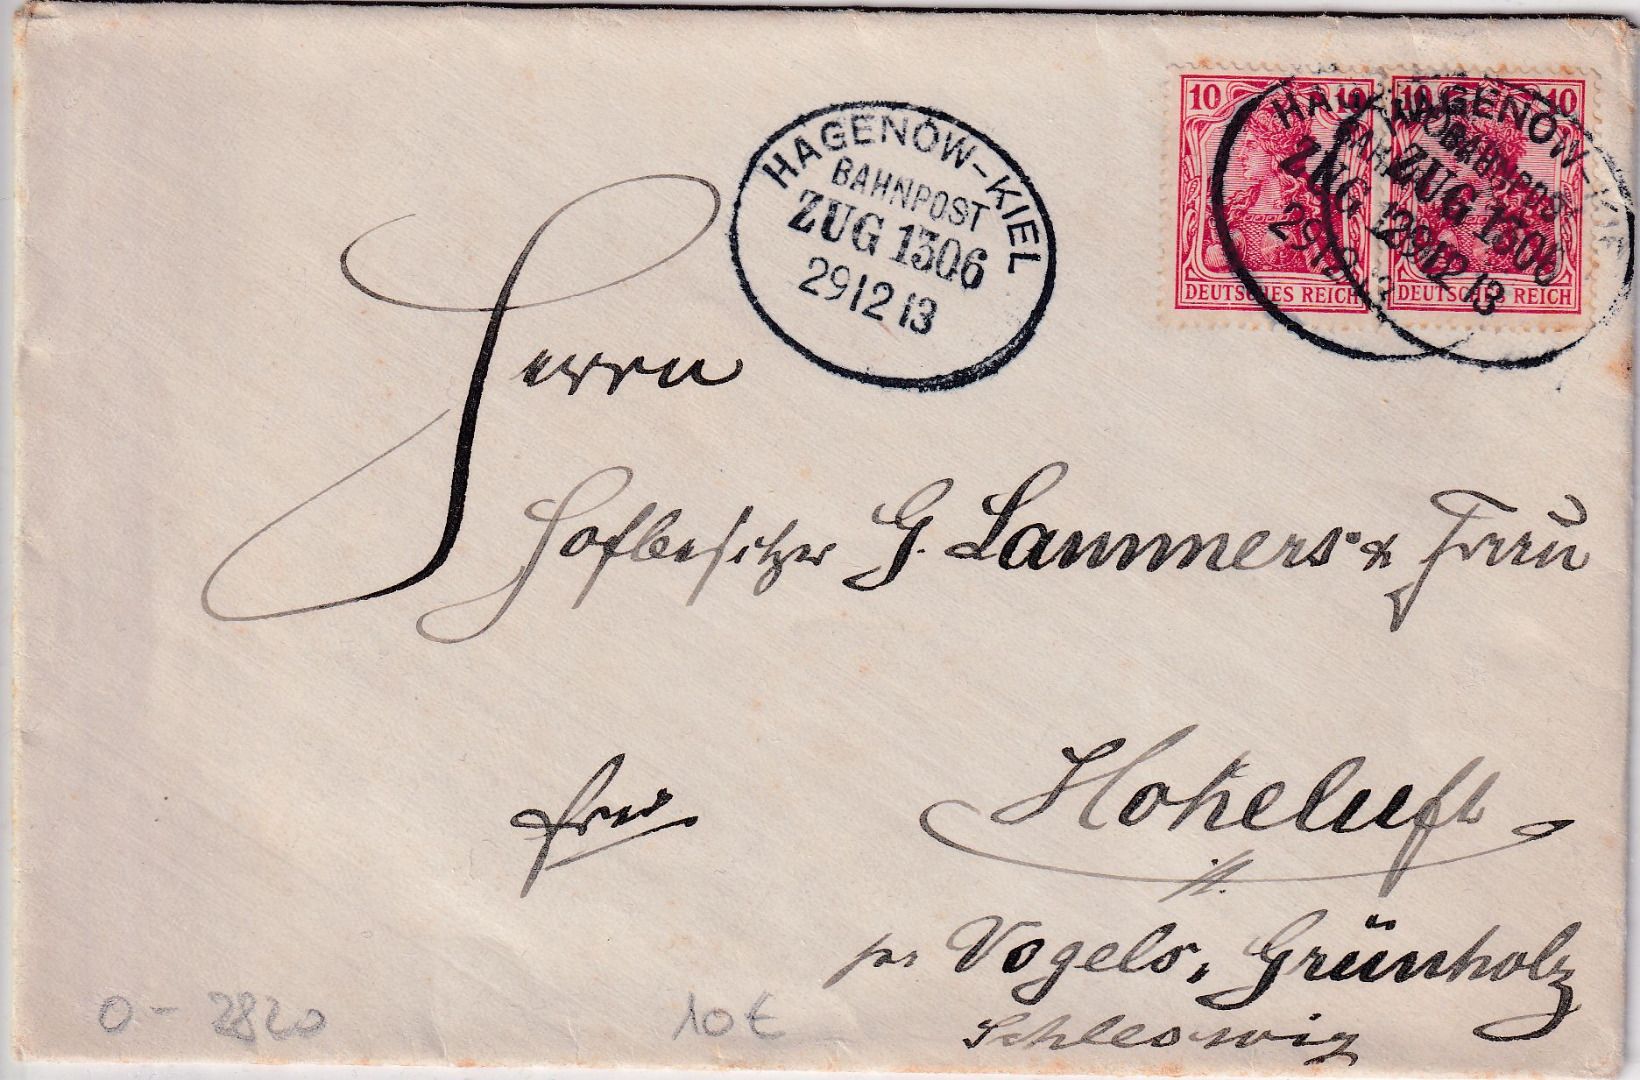 HAGENOW-KIEL
BAHNPOST
ZUG 1306
29 12 13
10 10
DEUTSCHES REICH
10 10
DEUTSCHES REICH
HAGENOW-KIEL
BAHNPOST
ZUG 1306
29 12 13
Herrn
Hofbesitzer G. Lammers & Frau
frei
Hoheluft
pr Vogels, Grünholz
Schleswig
0 - 2820
10 €